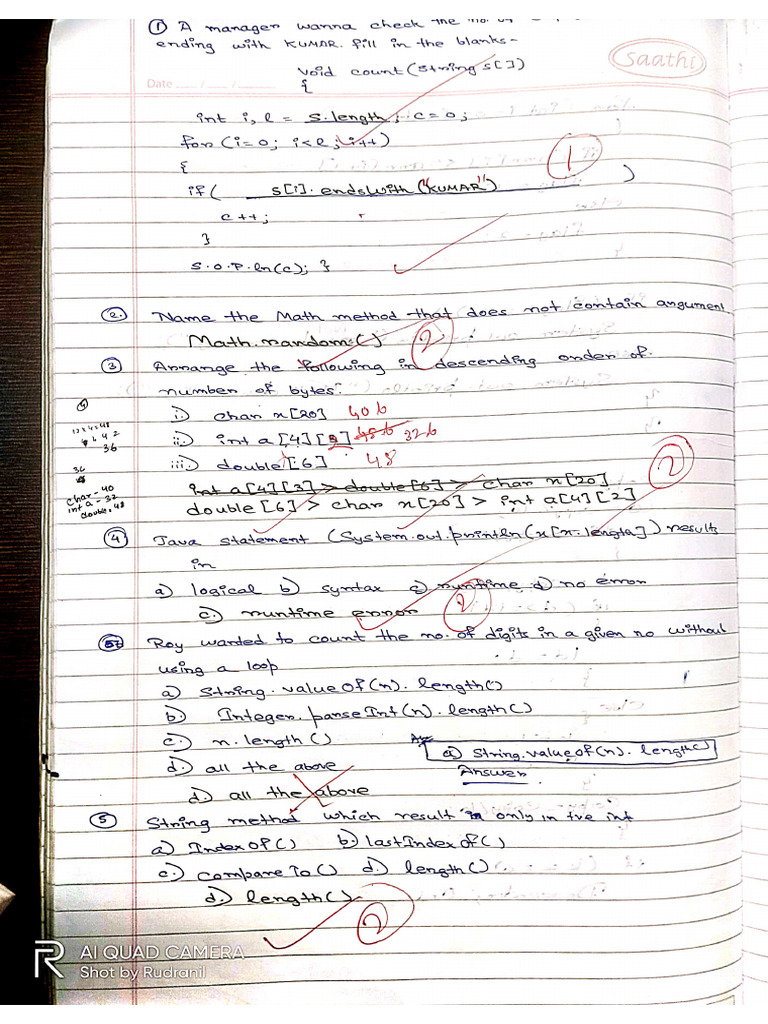 ① A manager wanna check the no. of
ending with KUMAR. fill in the blanks-
saathi
Date
void count(String s[])
{
int i, l = s.length; c=0;
for(i=0; i<l; i++)
{
1
if( s[i].endswith("KUMAR") )
c++;
}
S.O.P.ln(c); }
2. Name the Math method that does not contain argument
Math.random()
2
③ Arrange the following in descending order of
number of bytes:
i) char x[20] 40b
ii) int a[4][2] 48b 32b
iii.) double[6] 48
12×4=48
36
36
char-40
int a-32
double-48
int a[4][3] > double[6] > char x[20]
2
double[6] > char x[20] > int a[4][2]
④ Java statement (System.out.println(x[x.length]) results
in
a) logical b) syntax c) runtime d) no error
c.) runtime error
2
Roy wanted to count the no. of digits in a given no without
using a loop
a) String.valueOf(n).length()
b.) Integer.parseInt(n).length()
c.) n.length()
Ans
a) String.valueof(n).length()
d.) all the above
Answer
d.) all the above
⑤ String method which result in only in +ve int
a) IndexOf() b) lastIndexOf()
c.) compareTo() d.) length()
d.) length()
2
AI QUAD CAMERA
Shot by Rudranil